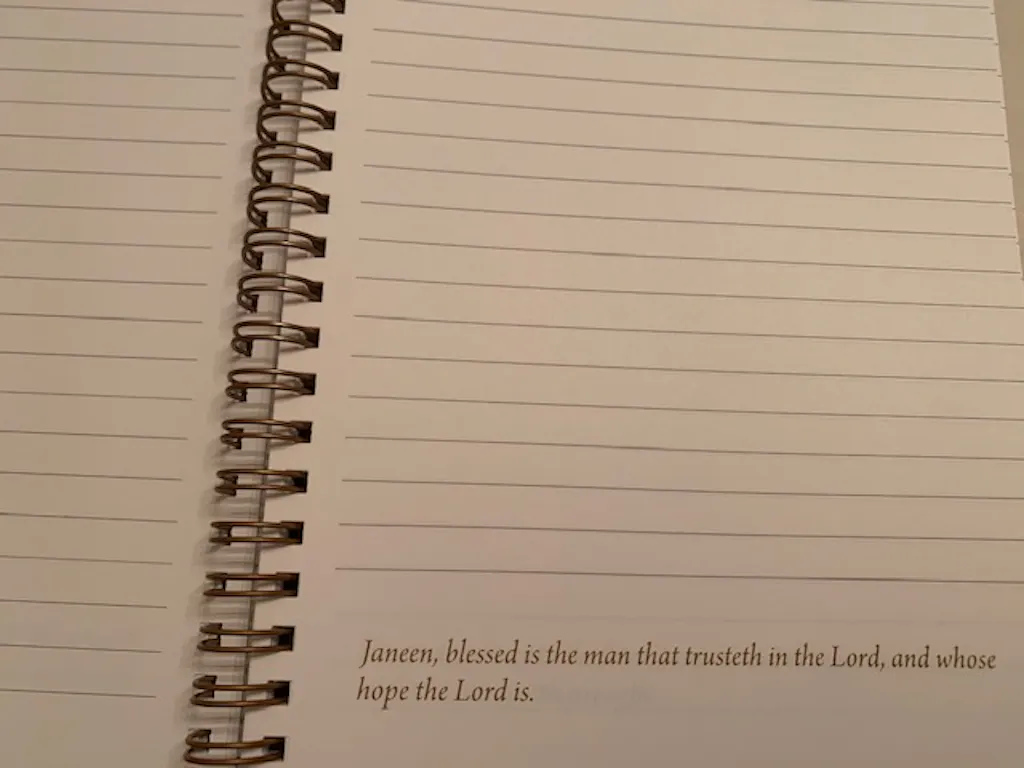 Janeen, blessed is the man that trusteth in the Lord, and whose
hope the Lord is.